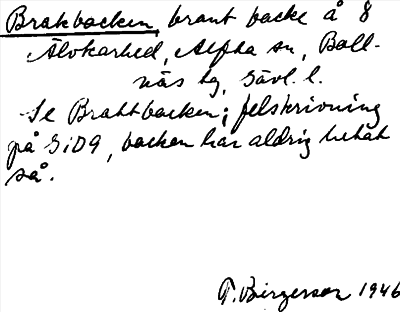 Brakbacken, brant backe å 8
Älvkarhed, Alfta sn, Boll-
näs tg, Gävl. l.
Se Brattbacken; felskrivning
på GiD9, backen har aldrig hetat
så.
T. Birgersson 1946